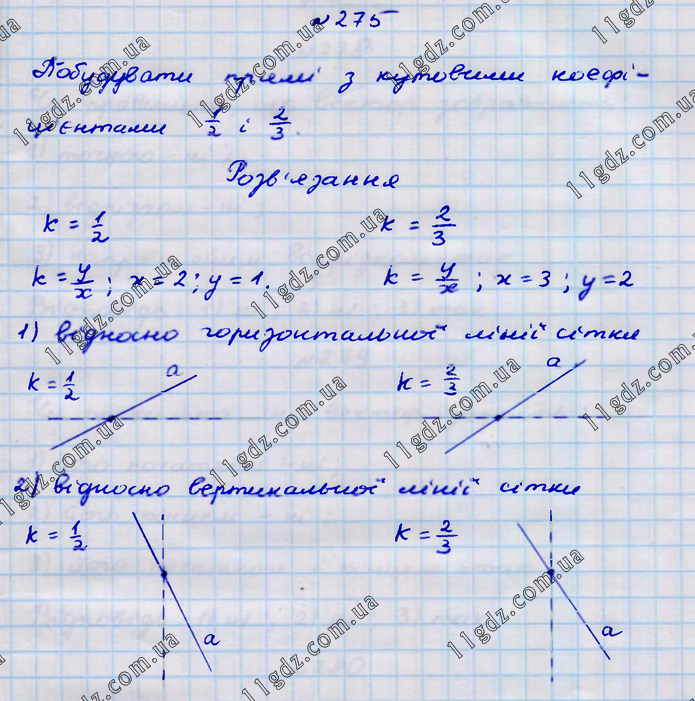 №275
Побудувати прямі з кутовими коефі-
цієнтами 1/2 і 2/3.
Розв'язання
k = 1/2 k = 2/3
k = y/x ; x = 2 ; y = 1. k = y/x ; x = 3 ; y = 2
1) відносно горизонтальної лінії сітки
k = 1/2 a k = 2/3 a
2) відносно вертикальної лінії сітки
k = 1/2 k = 2/3
a a
11gdz.com.ua